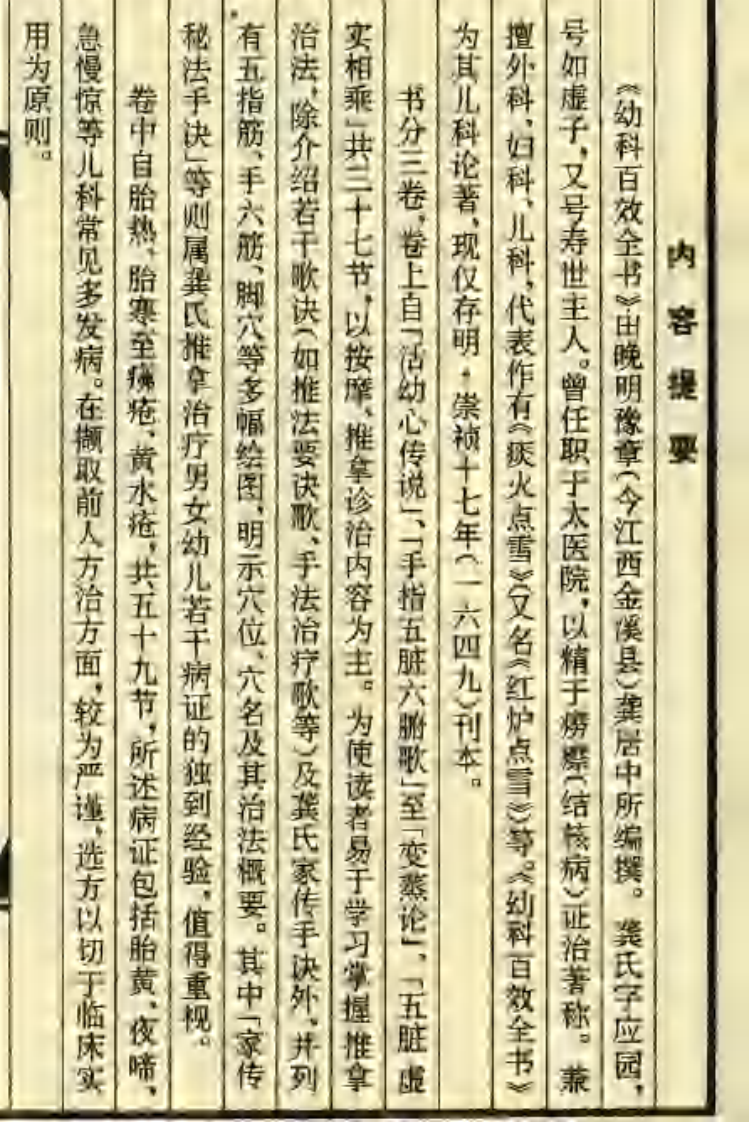 内容提要
《幼科百效全书》由晚明豫章(今江西金溪县)龚居中所编撰。龚氏字应园,
号如虚子,又号寿世主人。曾任职于太医院,以精于痨瘵(结核病)证治著称。兼
擅外科、妇科、儿科,代表作有《痰火点雪》(又名《红炉点雪》)等。《幼科百效全书》
为其儿科论著,现仅存明·崇祯十七年(一六四九)刊本。
书分三卷,卷上自「活幼心传说」、「手指五脏六腑歌」至「变蒸论」、「五脏虚
实相乘」共三十七节,以按摩、推拿诊治内容为主。为使读者易于学习掌握推拿
治法,除介绍若干歌诀(如推法要诀歌、手法治疗歌等)及龚氏家传手诀外,并列
有五指筋、手六筋、脚穴等多幅绘图,明示穴位、穴名及其治法概要。其中「家传
秘法手诀」等则属龚氏推拿治疗男女幼儿若干病证的独到经验,值得重视。
卷中自胎热、胎寒至痱疮、黄水疮,共五十九节,所述病证包括胎黄、夜啼、
急慢惊等儿科常见多发病。在撷取前人方治方面,较为严谨,选方以切于临床实
用为原则。